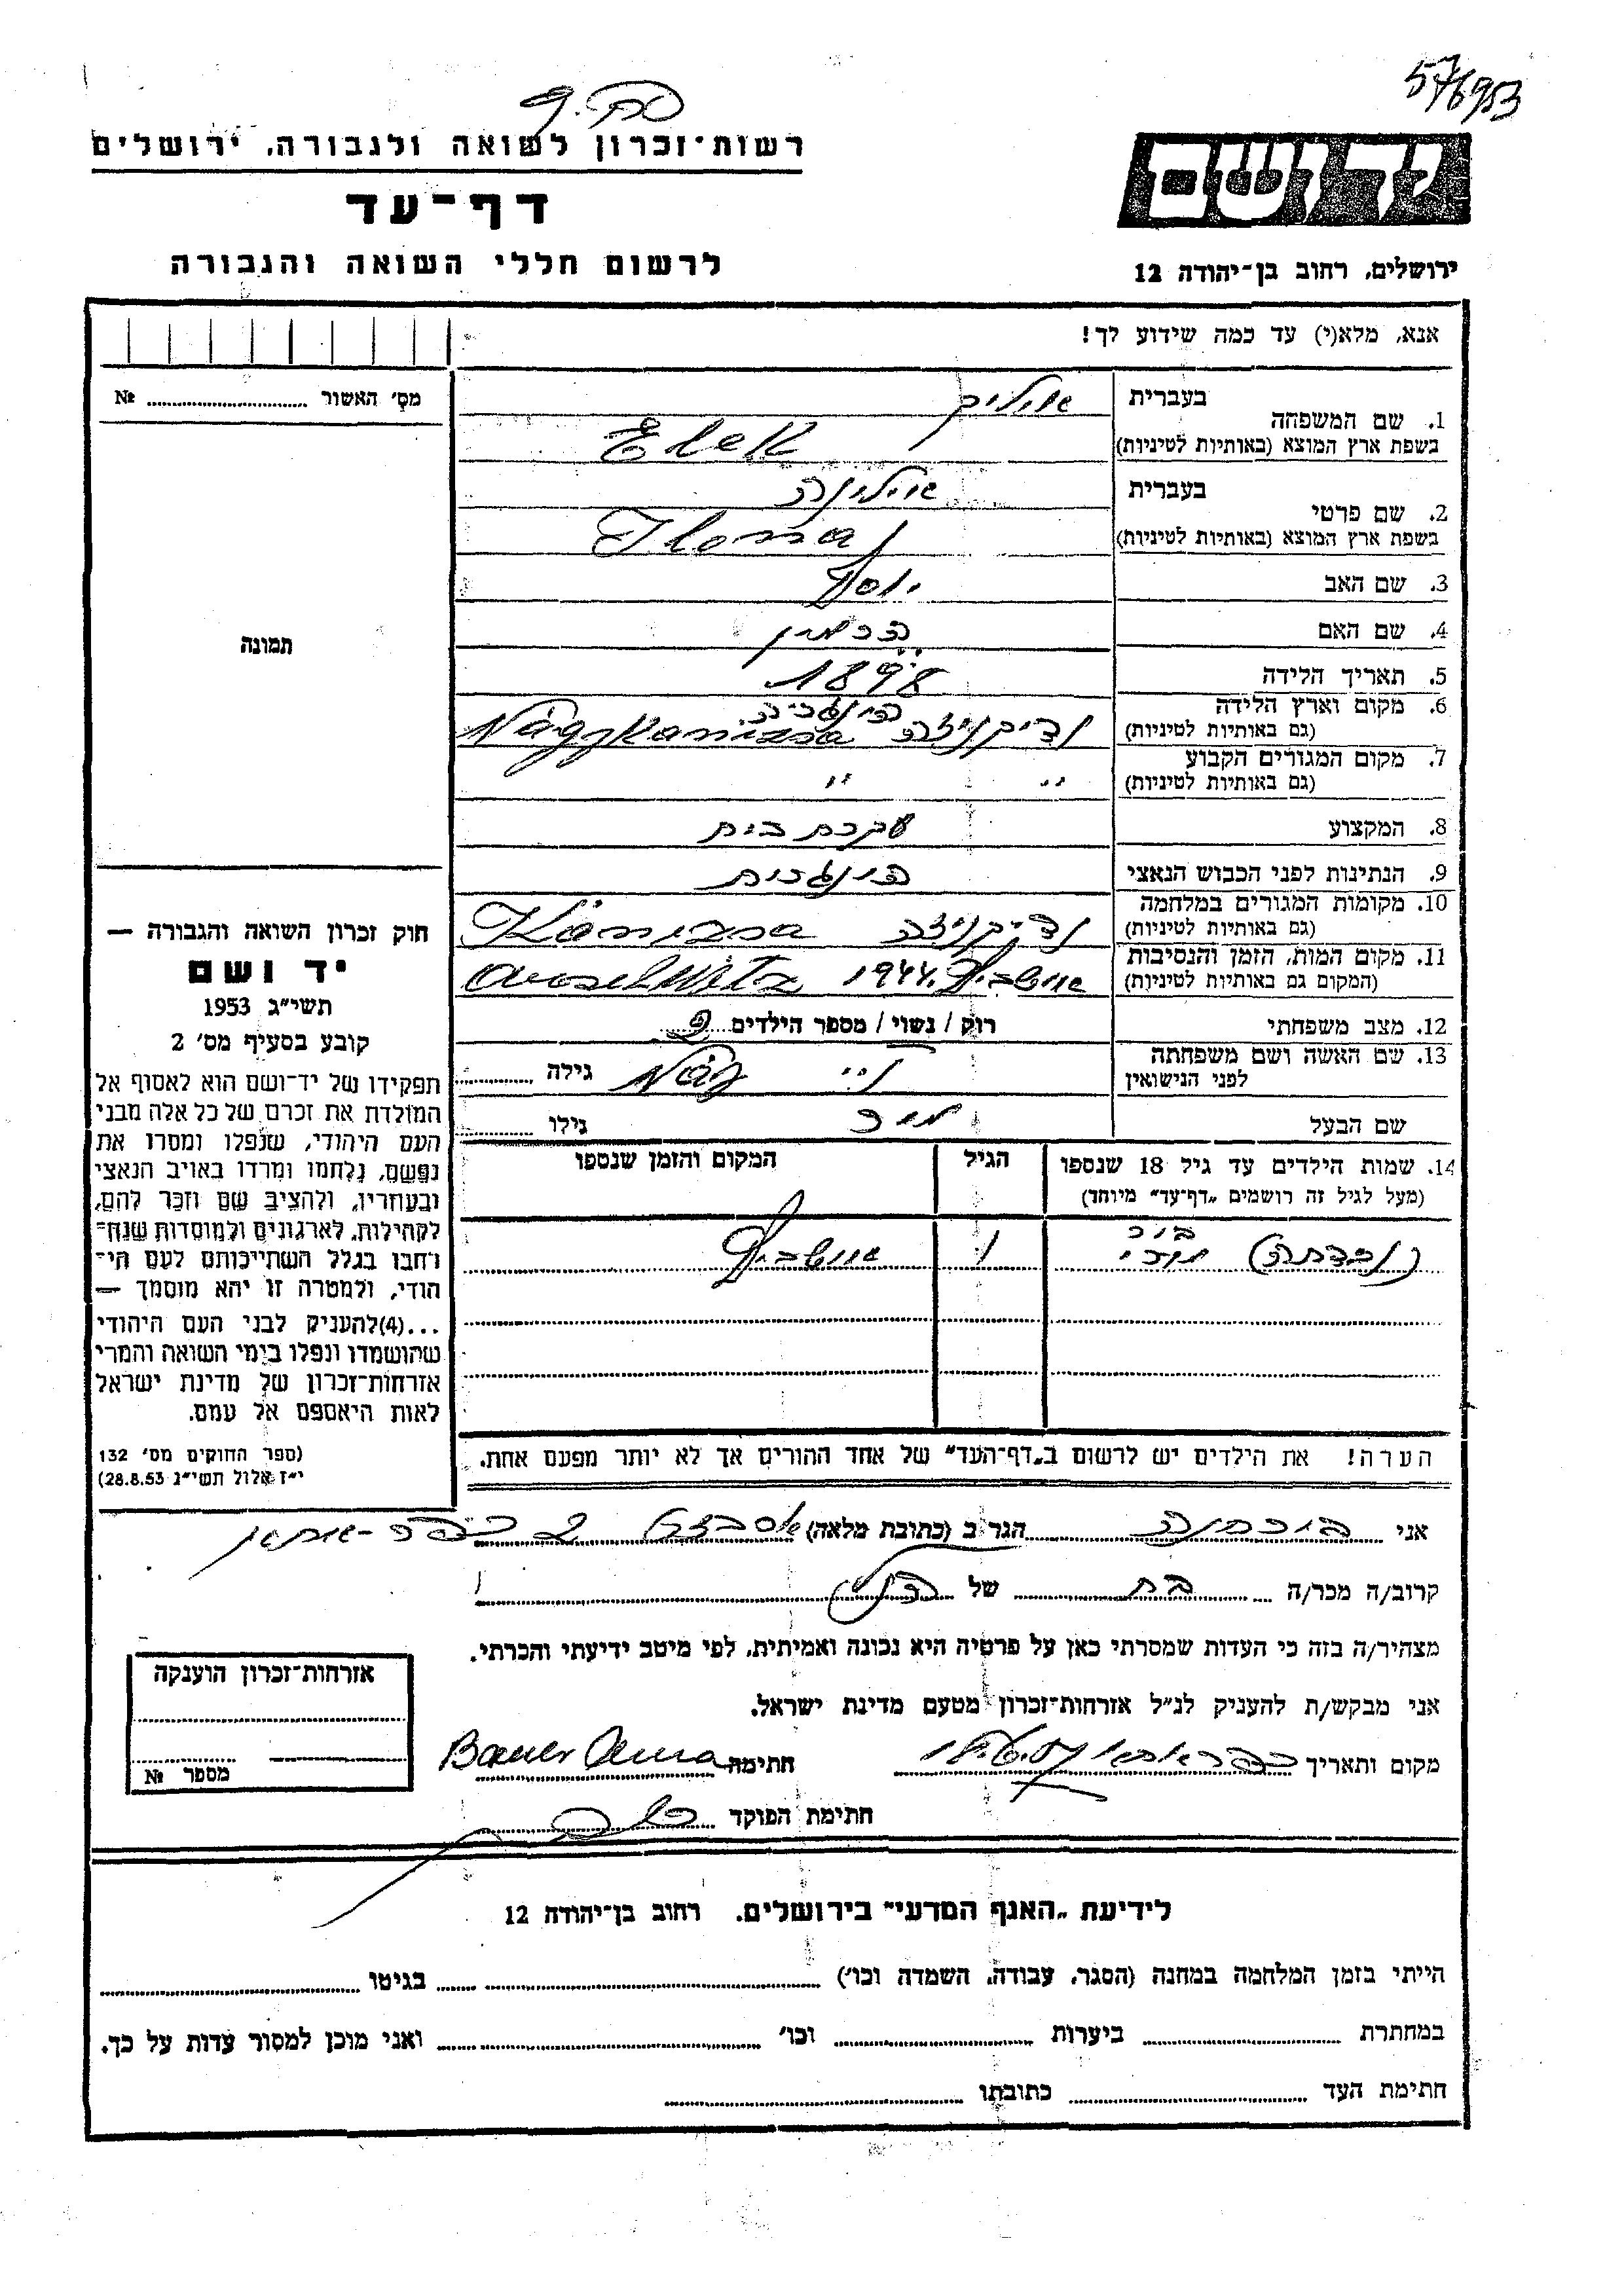 576953
רשות־זכרון לשואה ולגבורה, ירושלים
יד ושם
דף־עד
לרשום חללי השואה והגבורה
ירושלים, רחוב בן־יהודה 12
אנא, מלא(י) עד כמה שידוע לך!
מס׳ האשור № 
1. שם המשפחה
בעברית
בשפת ארץ המוצא (באותיות לטיניות) Elek
2. שם פרטי
בעברית אילונה
בשפת ארץ המוצא (באותיות לטיניות) Ilona
3. שם האב יוסף
4. שם האם
5. תאריך הלידה 1898
6. מקום וארץ הלידה הונגריה
(גם באותיות לטיניות) Nagykanizsa
7. מקום המגורים הקבוע
(גם באותיות לטיניות) " "
8. המקצוע עקרת בית
9. הנתינות לפני הכבוש הנאצי הונגרית
10. מקומות המגורים במלחמה
(גם באותיות לטיניות) Kanizsa
11. מקום המות, הזמן והנסיבות
(המקום גם באותיות לטיניות) אושביץ 1944
12. מצב משפחתי רוק / נשוי / מספר הילדים
13. שם האשה ושם משפחתה
לפני הנישואין גילה
שם הבעל גילו
14. שמות הילדים עד גיל 18 שנספו
(מעל לגיל זה רושמים „דף־עד" מיוחד)
הגיל
המקום והזמן שנספו
(נכדתה) 1 אושביץ
הערה! את הילדים יש לרשום ב„דף־העד" של אחד ההורים אך לא יותר מפעם אחת.
תמונה
חוק זכרון השואה והגבורה —
יד ושם
תשי״ג 1953
קובע בסעיף מס׳ 2
תפקידו של יד־ושם הוא לאסוף אל
המולדת את זכרם של כל אלה מבני
העם היהודי, שנפלו ומסרו את
נפשם, נלחמו ומרדו באויב הנאצי
ובעוזריו, ולהציב שם וזכר להם,
לקהילות, לארגונים ולמוסדות שנח־
רחבו בגלל השתייכותם לעם הי־
הודי, ולמטרה זו יהא מוסמך —
...(4)להעניק לבני העם היהודי
שהושמדו ונפלו בימי השואה והמרי
אזרחות־זכרון של מדינת ישראל
לאות היאספם אל עמם.
(ספר החוקים מס׳ 132
י״ז אלול תשי״ג 28.8.53)
אני הגר ב (כתובת מלאה)
קרוב/ה מכר/ה בת של
מצהיר/ה בזה כי העדות שמסרתי כאן על פרטיה היא נכונה ואמיתית, לפי מיטב ידיעתי והכרתי.
אני מבקש/ת להעניק לנ״ל אזרחות־זכרון מטעם מדינת ישראל.
מקום ותאריך חתימה Bauer
חתימת הפוקד
אזרחות־זכרון הוענקה
מספר №
לידיעת „האגף המדעי" בירושלים, רחוב בן־יהודה 12
הייתי בזמן המלחמה במחנה (הסגר, עבודה, השמדה וכו׳) בגיטו
במחתרת ביערות וכו׳ ואני מוכן למסור עדות על כך.
חתימת העד כתובתו